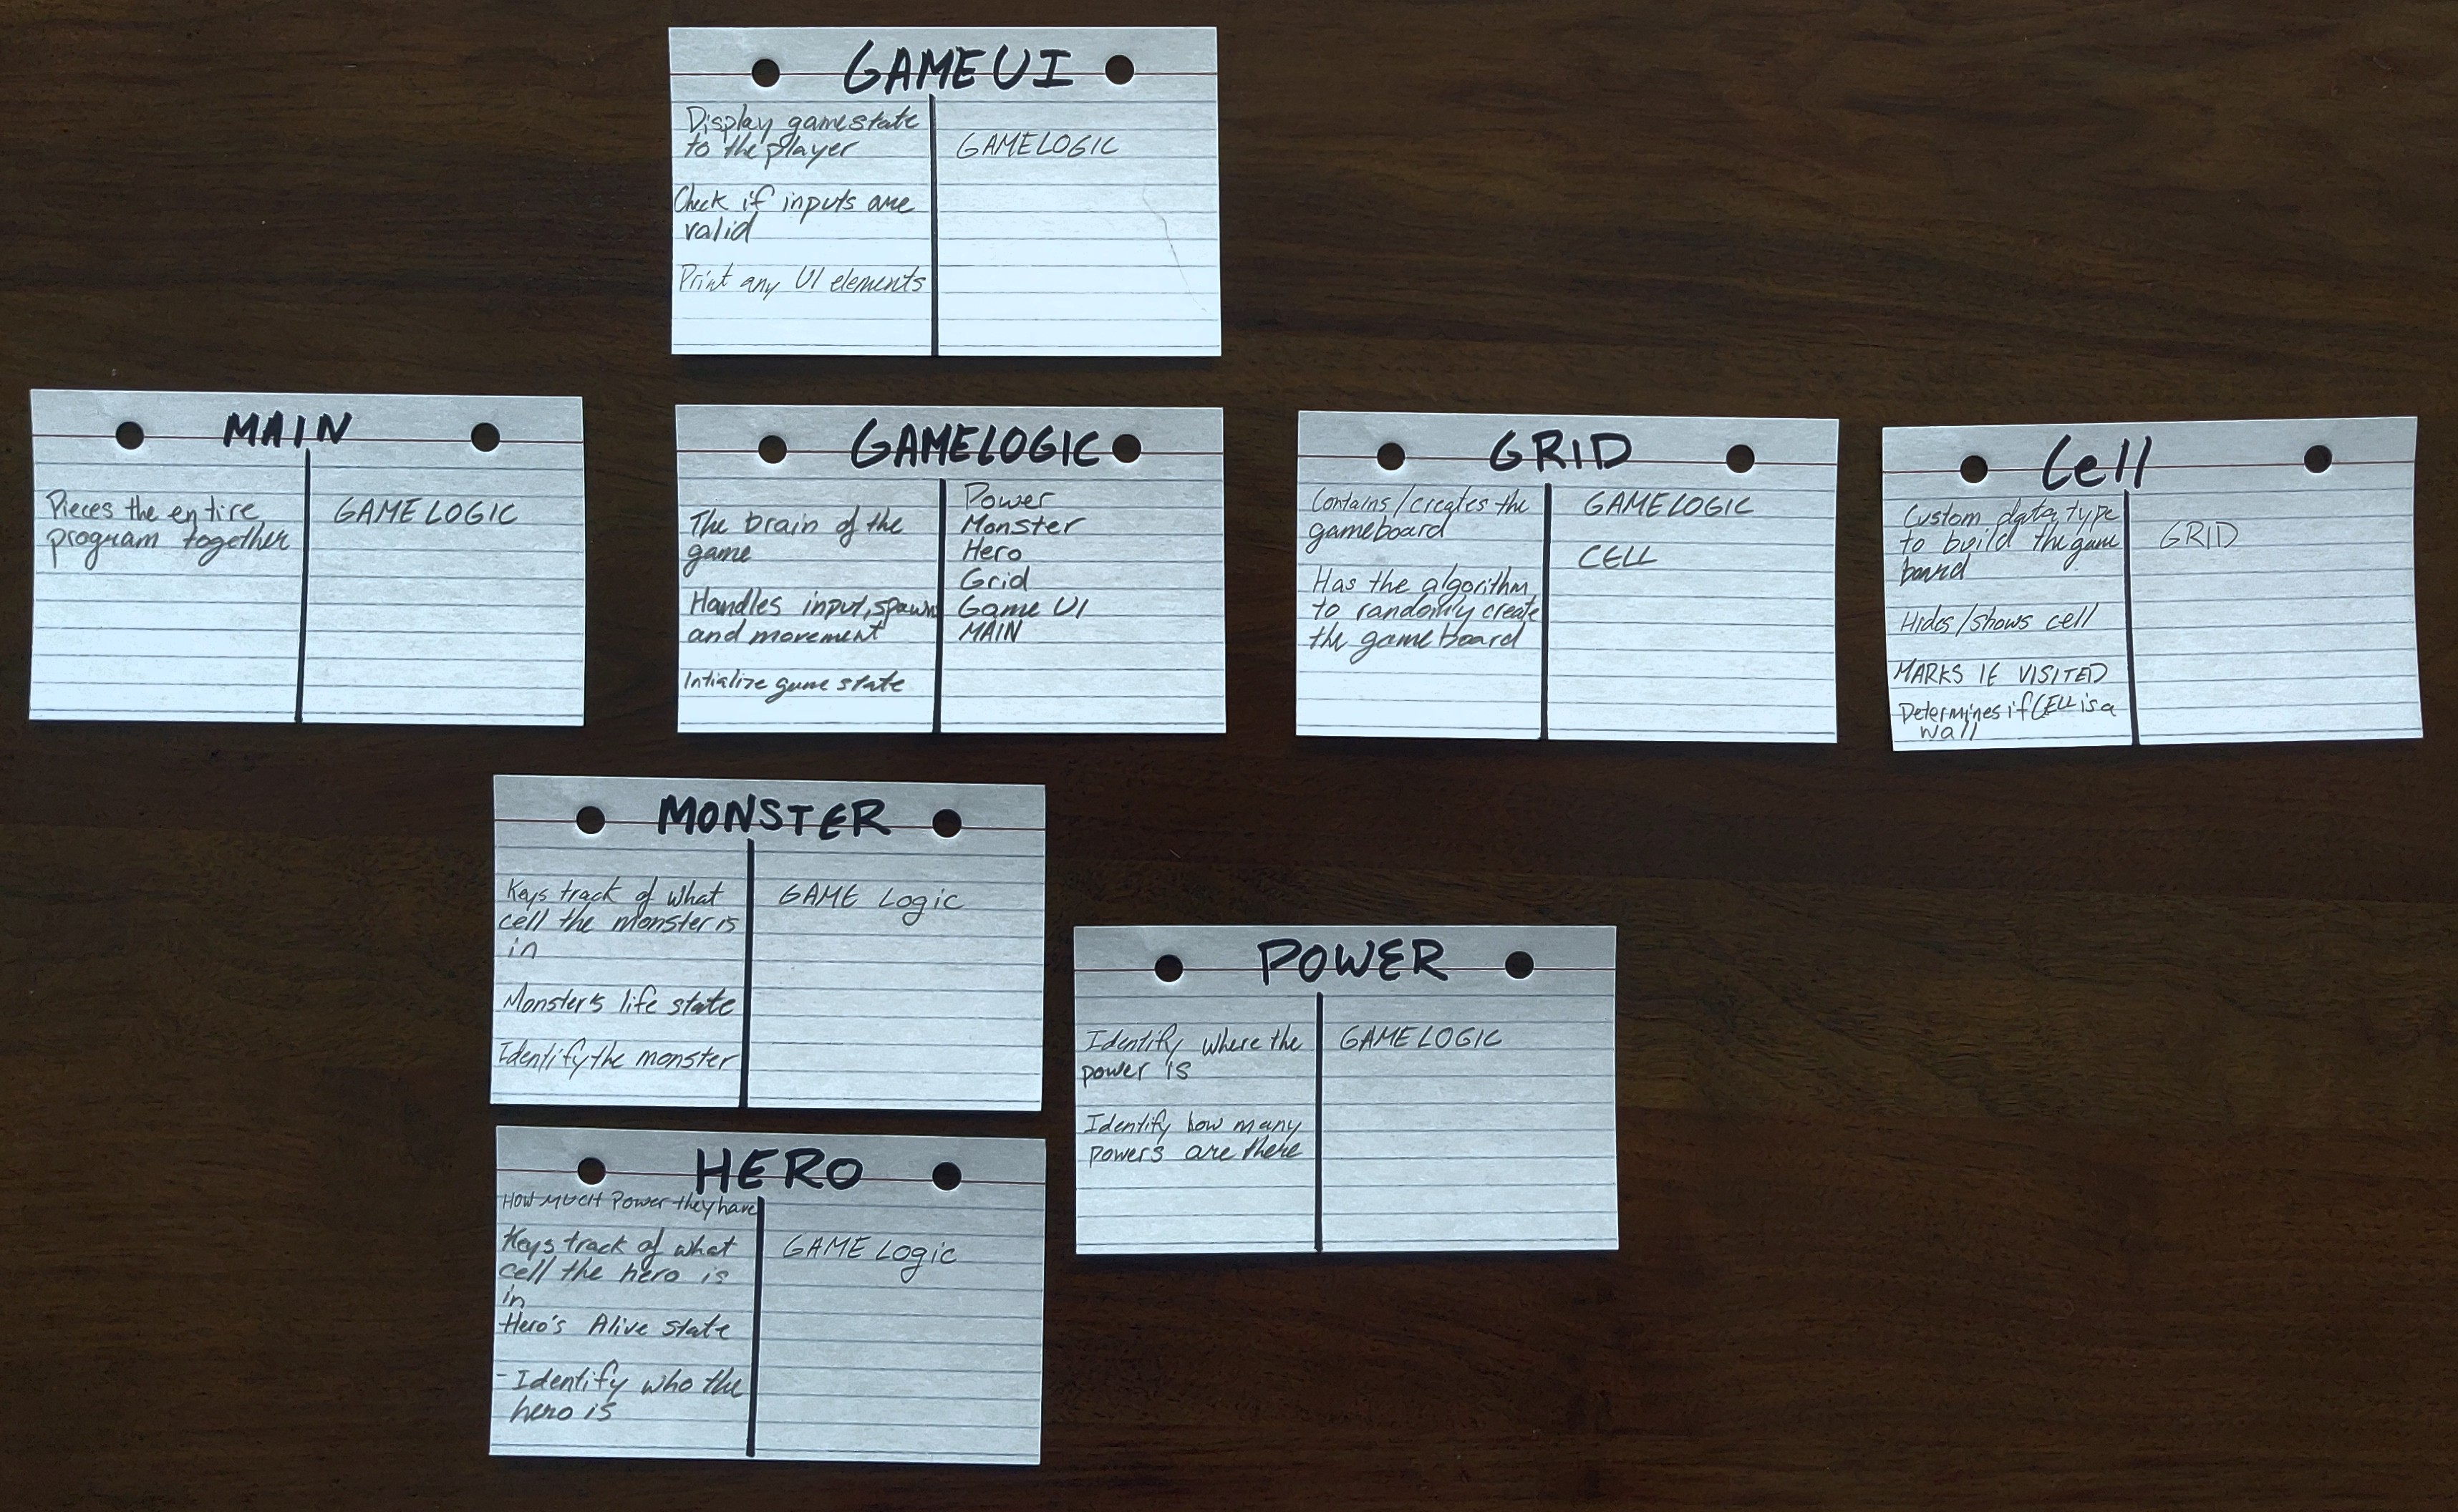 GAME UI
Display gamestate
to the player
Check if inputs are
valid
Print any UI elements
GAMELOGIC
MAIN
Pieces the entire
program together
GAMELOGIC
GAMELOGIC
The brain of the
game
Handles input, spawn
and movement
Intialize game state
Power
Monster
Hero
Grid
Game UI
MAIN
GRID
Contains/creates the
gameboard
Has the algorithm
to randomly create
the game board
GAMELOGIC
CELL
Cell
Custom data type
to build the game
board
Hides/shows cell
MARKS IF VISITED
Determines if CELL is a
wall
GRID
MONSTER
Keys track of what
cell the monster is
in
Monster's life state
Identify the monster
GAME Logic
POWER
Identify where the
power is
Identify how many
powers are there
GAMELOGIC
HERO
HOW MUCH Power they have
Keys track of what
cell the hero is
in
Hero's Alive state
- Identify who the
hero is
GAME Logic